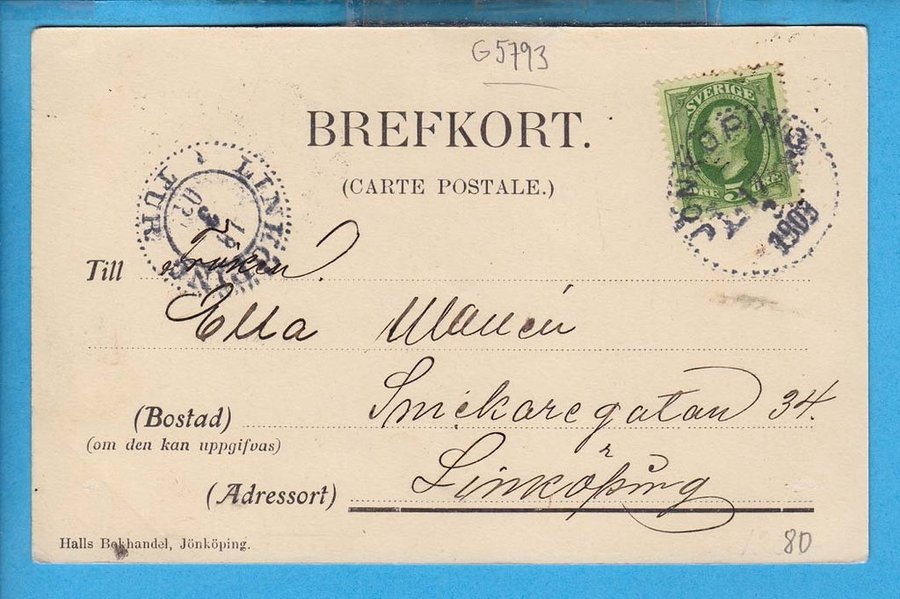 G5793
BREFKORT.
(CARTE POSTALE.)
SVERIGE
5
JÖNKÖPING
1903
LINKÖPING
TUR
Till Fröken
Ella Wallén
(Bostad) Smekaregatan 34.
(om den kan uppgifvas)
(Adressort) Linköping
Halls Bokhandel, Jönköping.
80